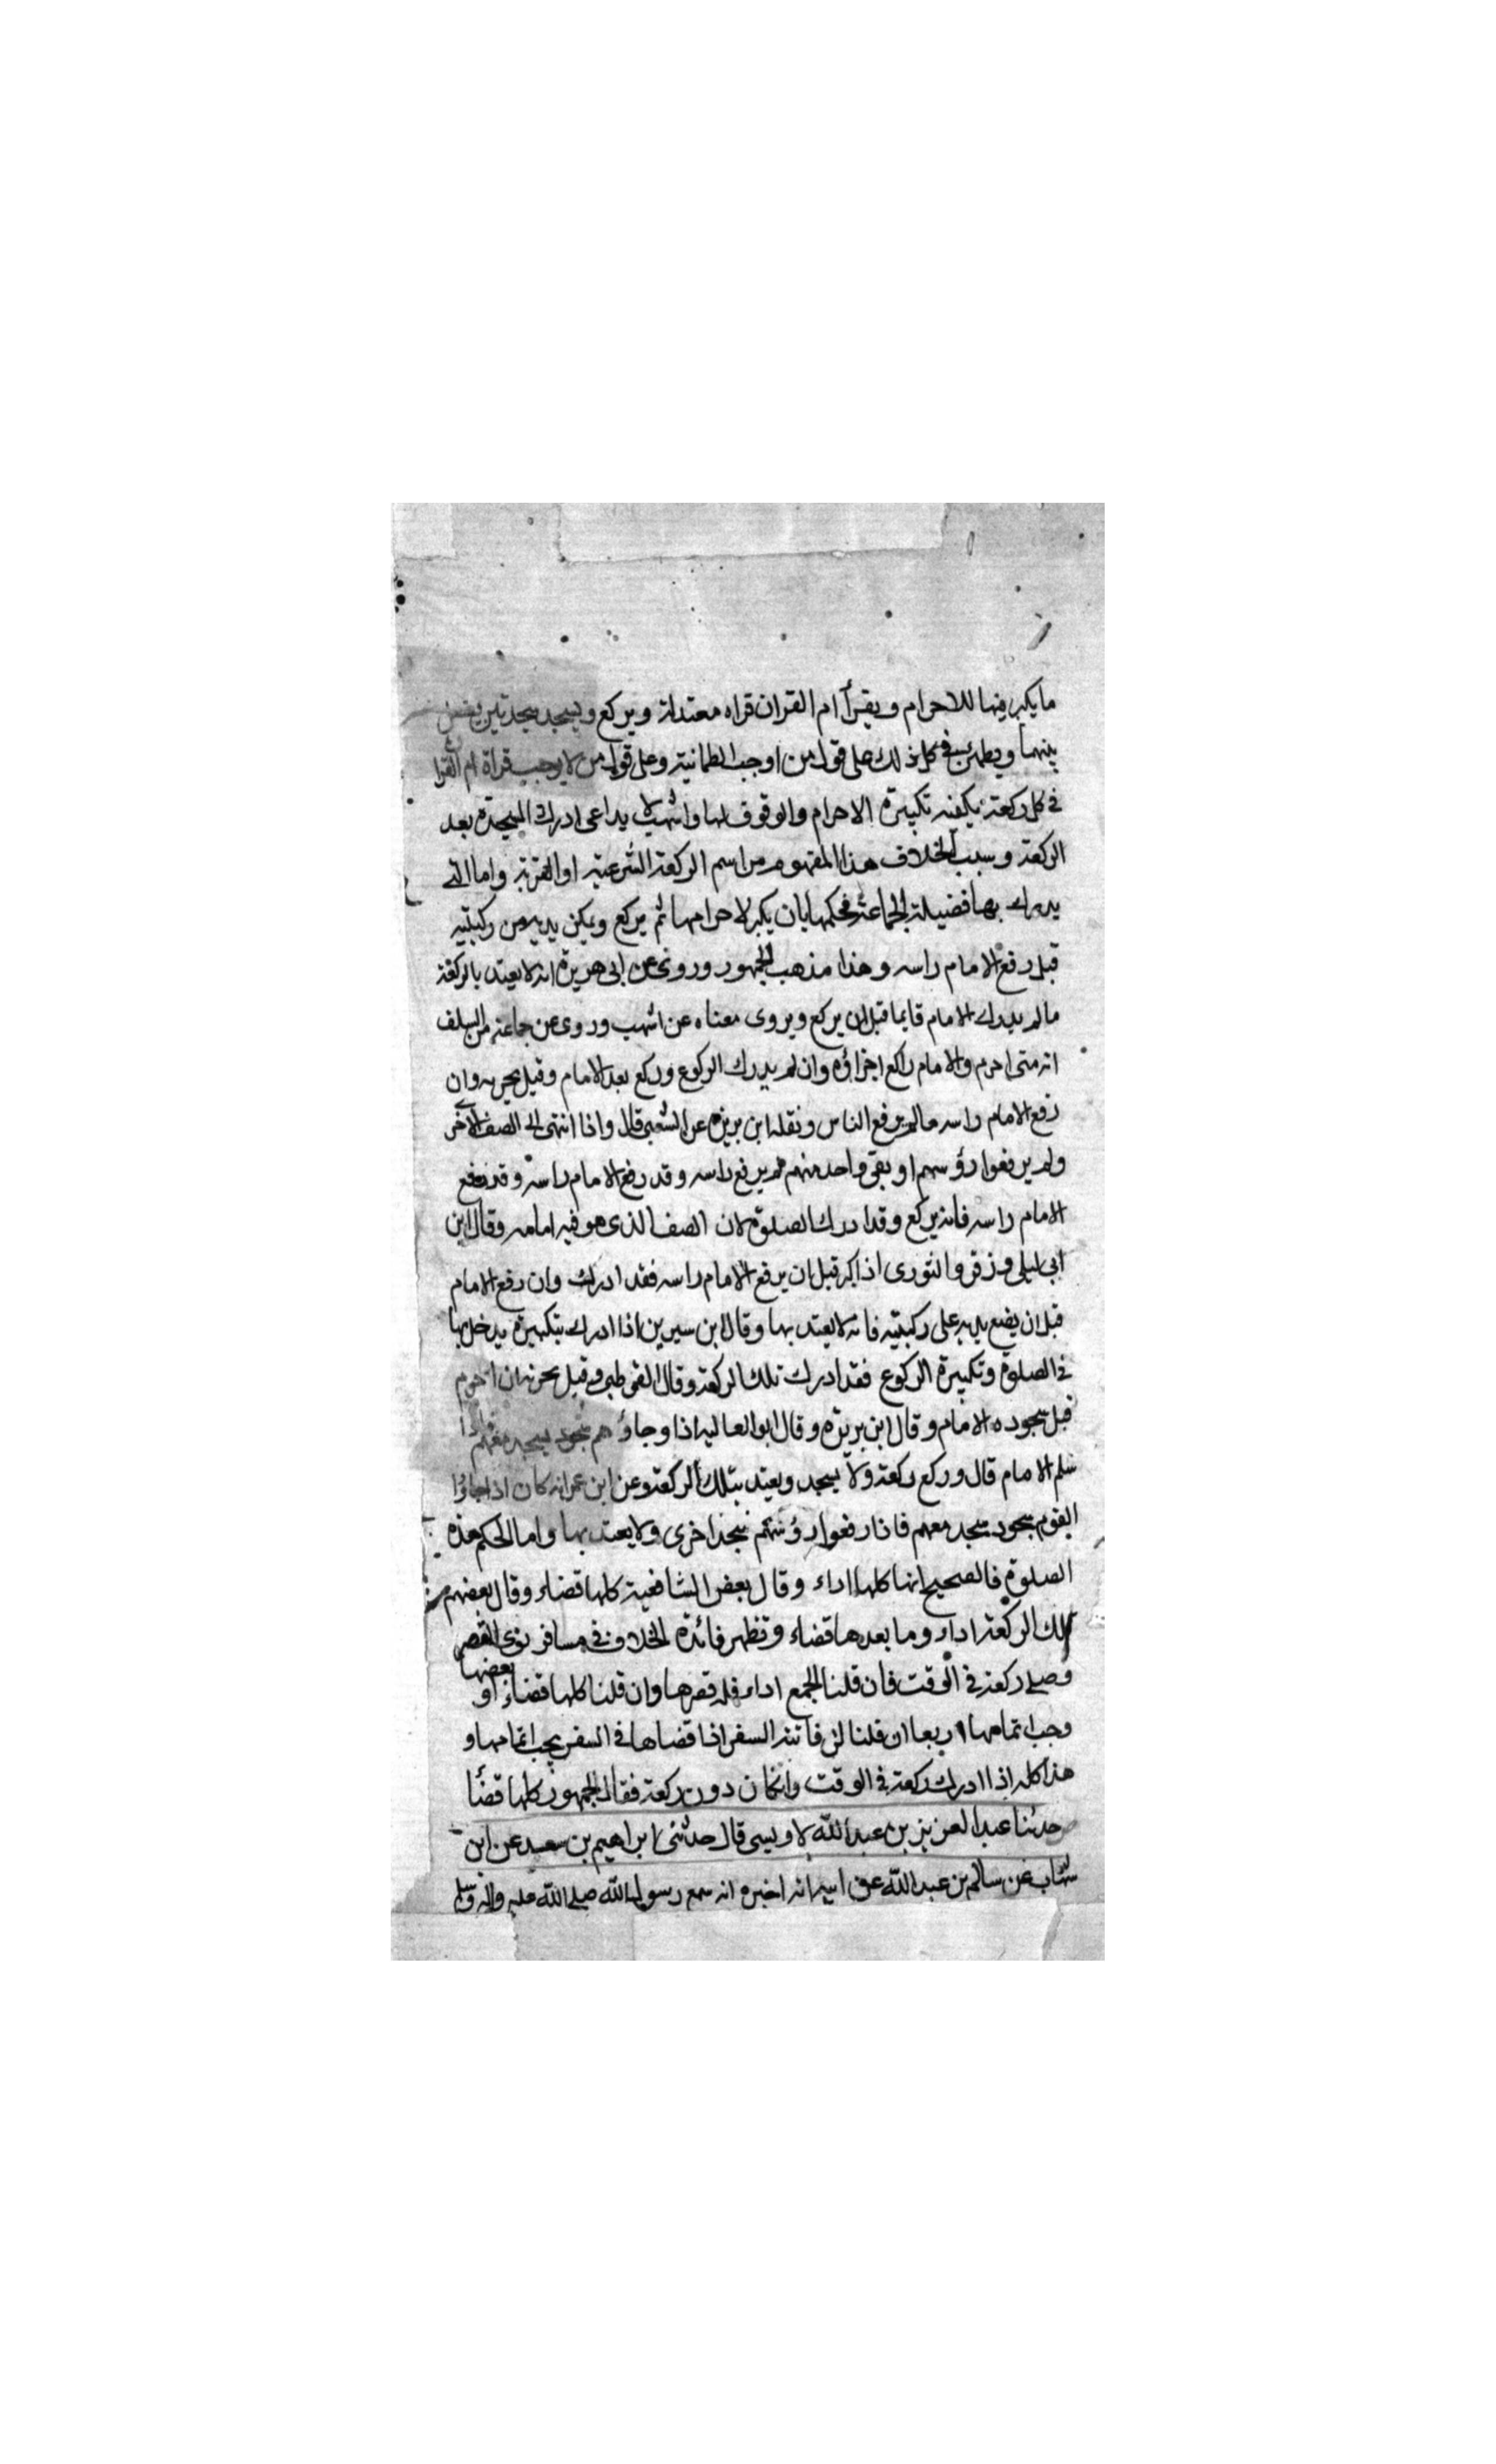 ما يكبر فيها للاحرام ويقرأ ام القران قراه معتدلة ويركع ويسجد سجدتين يفصل
بينهما ويطمئن في كل ذلك على قول من اوجب الطمانية وعلى قول من لا يوجب قراة ام القرا
في كل ركعة يكفيه تكبيرة الاحرام والوقوف لها واشهب لا يراعى ادراك السجدة بعد
الركعة وسبب الخلاف هذا المفهوم من اسم الركعة الشرعية او اللغوية واما التى
يدرك بها فضيلة الجماعة فحكمها بان يكبر لاحرامها ثم يركع ويمكن يديه من ركبتيه
قبل رفع الامام راسه وهذا مذهب الجمهور وروى عن ابى هريرة انه لا يعتد بالركعة
ما لم يدرك الامام قايما قبل ان يركع ويروى معناه عن اشهب وروى عن جماعة من السلف
انه متى احرم والامام راكع اجزاؤه وان لم يدرك الركوع وركع بعد الامام وقيل يجزيه وان
رفع الامام راسه ما لم يرفع الناس ونقله ابن بزيزه عن الشعبى قال واذا انتهى الى الصف الاخر
ولم يرفعوا رؤسهم او بقى واحد منهم لم يرفع راسه وقد رفع الامام راسه وقد رفع
الامام راسه فانه يركع وقد ادرك الصلوة لان الصف الذى هو فيه امامه وقال ابن
ابى ليلى وزفر والثورى اذا كبر قبل ان يرفع الامام راسه فقد ادرك وان رفع الامام
قبل ان يضع يديه على ركبتيه فانه لا يعتد بها وقال ابن سيرين اذا ادرك بتكبيرة يدخل بها
فى الصلوة وتكبيرة الركوع فقد ادرك تلك الركعة وقال القرطبى وقيل يجزيه ان احرم
قبل سجوده الامام وقال ابن بزيزه وقال ابو العاليه اذا وجاؤ هم سجود يسجد معهم فاذا
سلم الامام قال وركع ركعة ولا يسجد ويعتد بتلك الركعة وعن ابن عمر انه كان اذا جاؤا
القوم سجود سجد معهم فاذا رفعوا رؤسهم سجد اخرى ولا يعتد بها واما الحكم هذه
الصلوة فالصحيح انها كلها اداء وقال بعض الشافعية كلها قضاء وقال بعضهم
تلك الركعة اداء وما بعدها قضاء وتظهر فائدة الخلاف فى مسافر نوى القصر
وصلى ركعة فى الوقت فان قلنا الجمع اداء فله قصرها وان قلنا كلها قضاء او بعضها
وجب اتمامها اربعا ان قلنا ان فائتة السفر اذا قضاها فى السفر يجب اتمامها و
هذا كله اذا ادرك ركعة فى الوقت وان كان دون ركعة فقال الجمهور كلها قضأ
ص حدثنا عبد العزيز بن عبد الله الاويسى قال حدثنى ابراهيم بن سعيد عن ابن
شهاب عن سالم بن عبد الله عن ابيه انه اخبره انه سمع رسول الله صلى الله عليه واله وسلم